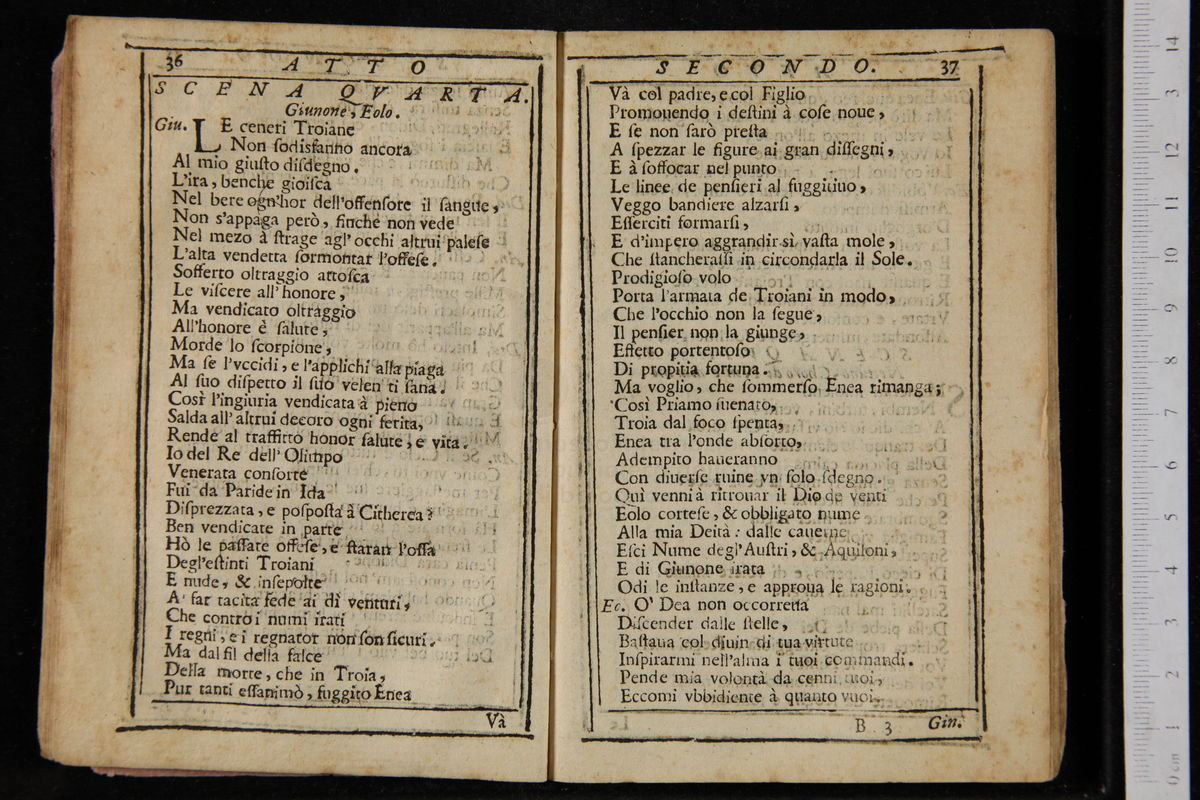 36 ATTO
SCENA QVARTA.
Giunone, Eolo.
Giu. LE ceneri Troiane
Non ſodisfanno ancora
Al mio giuſto diſdegno.
L'ira, benche gioiſca
Nel bere ogn'hor dell'offenſore il ſangue,
Non s'appaga però, finche non vede
Nel mezo à ſtrage agl'occhi altrui paleſe
L'alta vendetta ſormontar l'offeſe.
Sofferto oltraggio attoſca
Le viſcere all'honore,
Ma vendicato oltraggio
All'honore è ſalute,
Morde lo ſcorpione,
Ma ſe l'vccidi, e l'applichi alla piaga
Al ſuo diſpetto il ſuo velen ti ſana.
Così l'ingiuria vendicata à pieno
Salda all'altrui decoro ogni ferita,
Rende al traffitto honor ſalute, e vita.
Io del Re dell'Olimpo
Venerata conſorte
Fui da Paride in Ida
Diſprezzata, e poſpoſta à Citherea?
Ben vendicate in parte
Hò le paſſate offeſe, e ſtaran l'oſſa
Degl'eſtinti Troiani
E nude, & inſepolte
A far tacita fede ai dì venturi,
Che contro i numi irati
I regni, e i regnator non ſon ſicuri.
Ma dal fil della falce
Della morte, che in Troia,
Pur tanti eſſanimò, fuggito Enea
Và
SECONDO. 37
Và col padre, e col Figlio
Promouendo i deſtini à coſe noue,
E ſe non ſarò preſta
A ſpezzar le figure ai gran diſſegni,
E à ſoffocar nel punto
Le linee de penſieri al fuggitiuo,
Veggo bandiere alzarſi,
Eſſerciti formarſi,
E d'impero aggrandir sì vaſta mole,
Che ſtancheraſſi in circondarla il Sole.
Prodigioſo volo
Porta l'armata de Troiani in modo,
Che l'occhio non la ſegue,
Il penſier non la giunge,
Effetto portentoſo
Di propitia fortuna.
Ma voglio, che ſommerſo Enea rimanga;
Così Priamo ſuenato,
Troia dal foco ſpenta,
Enea tra l'onde abſorto,
Adempito haueranno
Con diuerſe ruine vn ſolo ſdegno.
Quì venni à ritrouar il Dio de venti
Eolo corteſe, & obbligato nume
Alla mia Deità: dalle cauerne
Eſci Nume degl'Auſtri, & Aquiloni,
E di Giunone irata
Odi le inſtanze, e approua le ragioni.
Eo. O' Dea non occorreua
Diſcender dalle ſtelle,
Baſtaua col diuin di tua virtute
Inſpirarmi nell'alma i tuoi commandi.
Pende mia volontà da cenni tuoi,
Eccomi vbbidiente à quanto vuoi.
B 3 Gin.